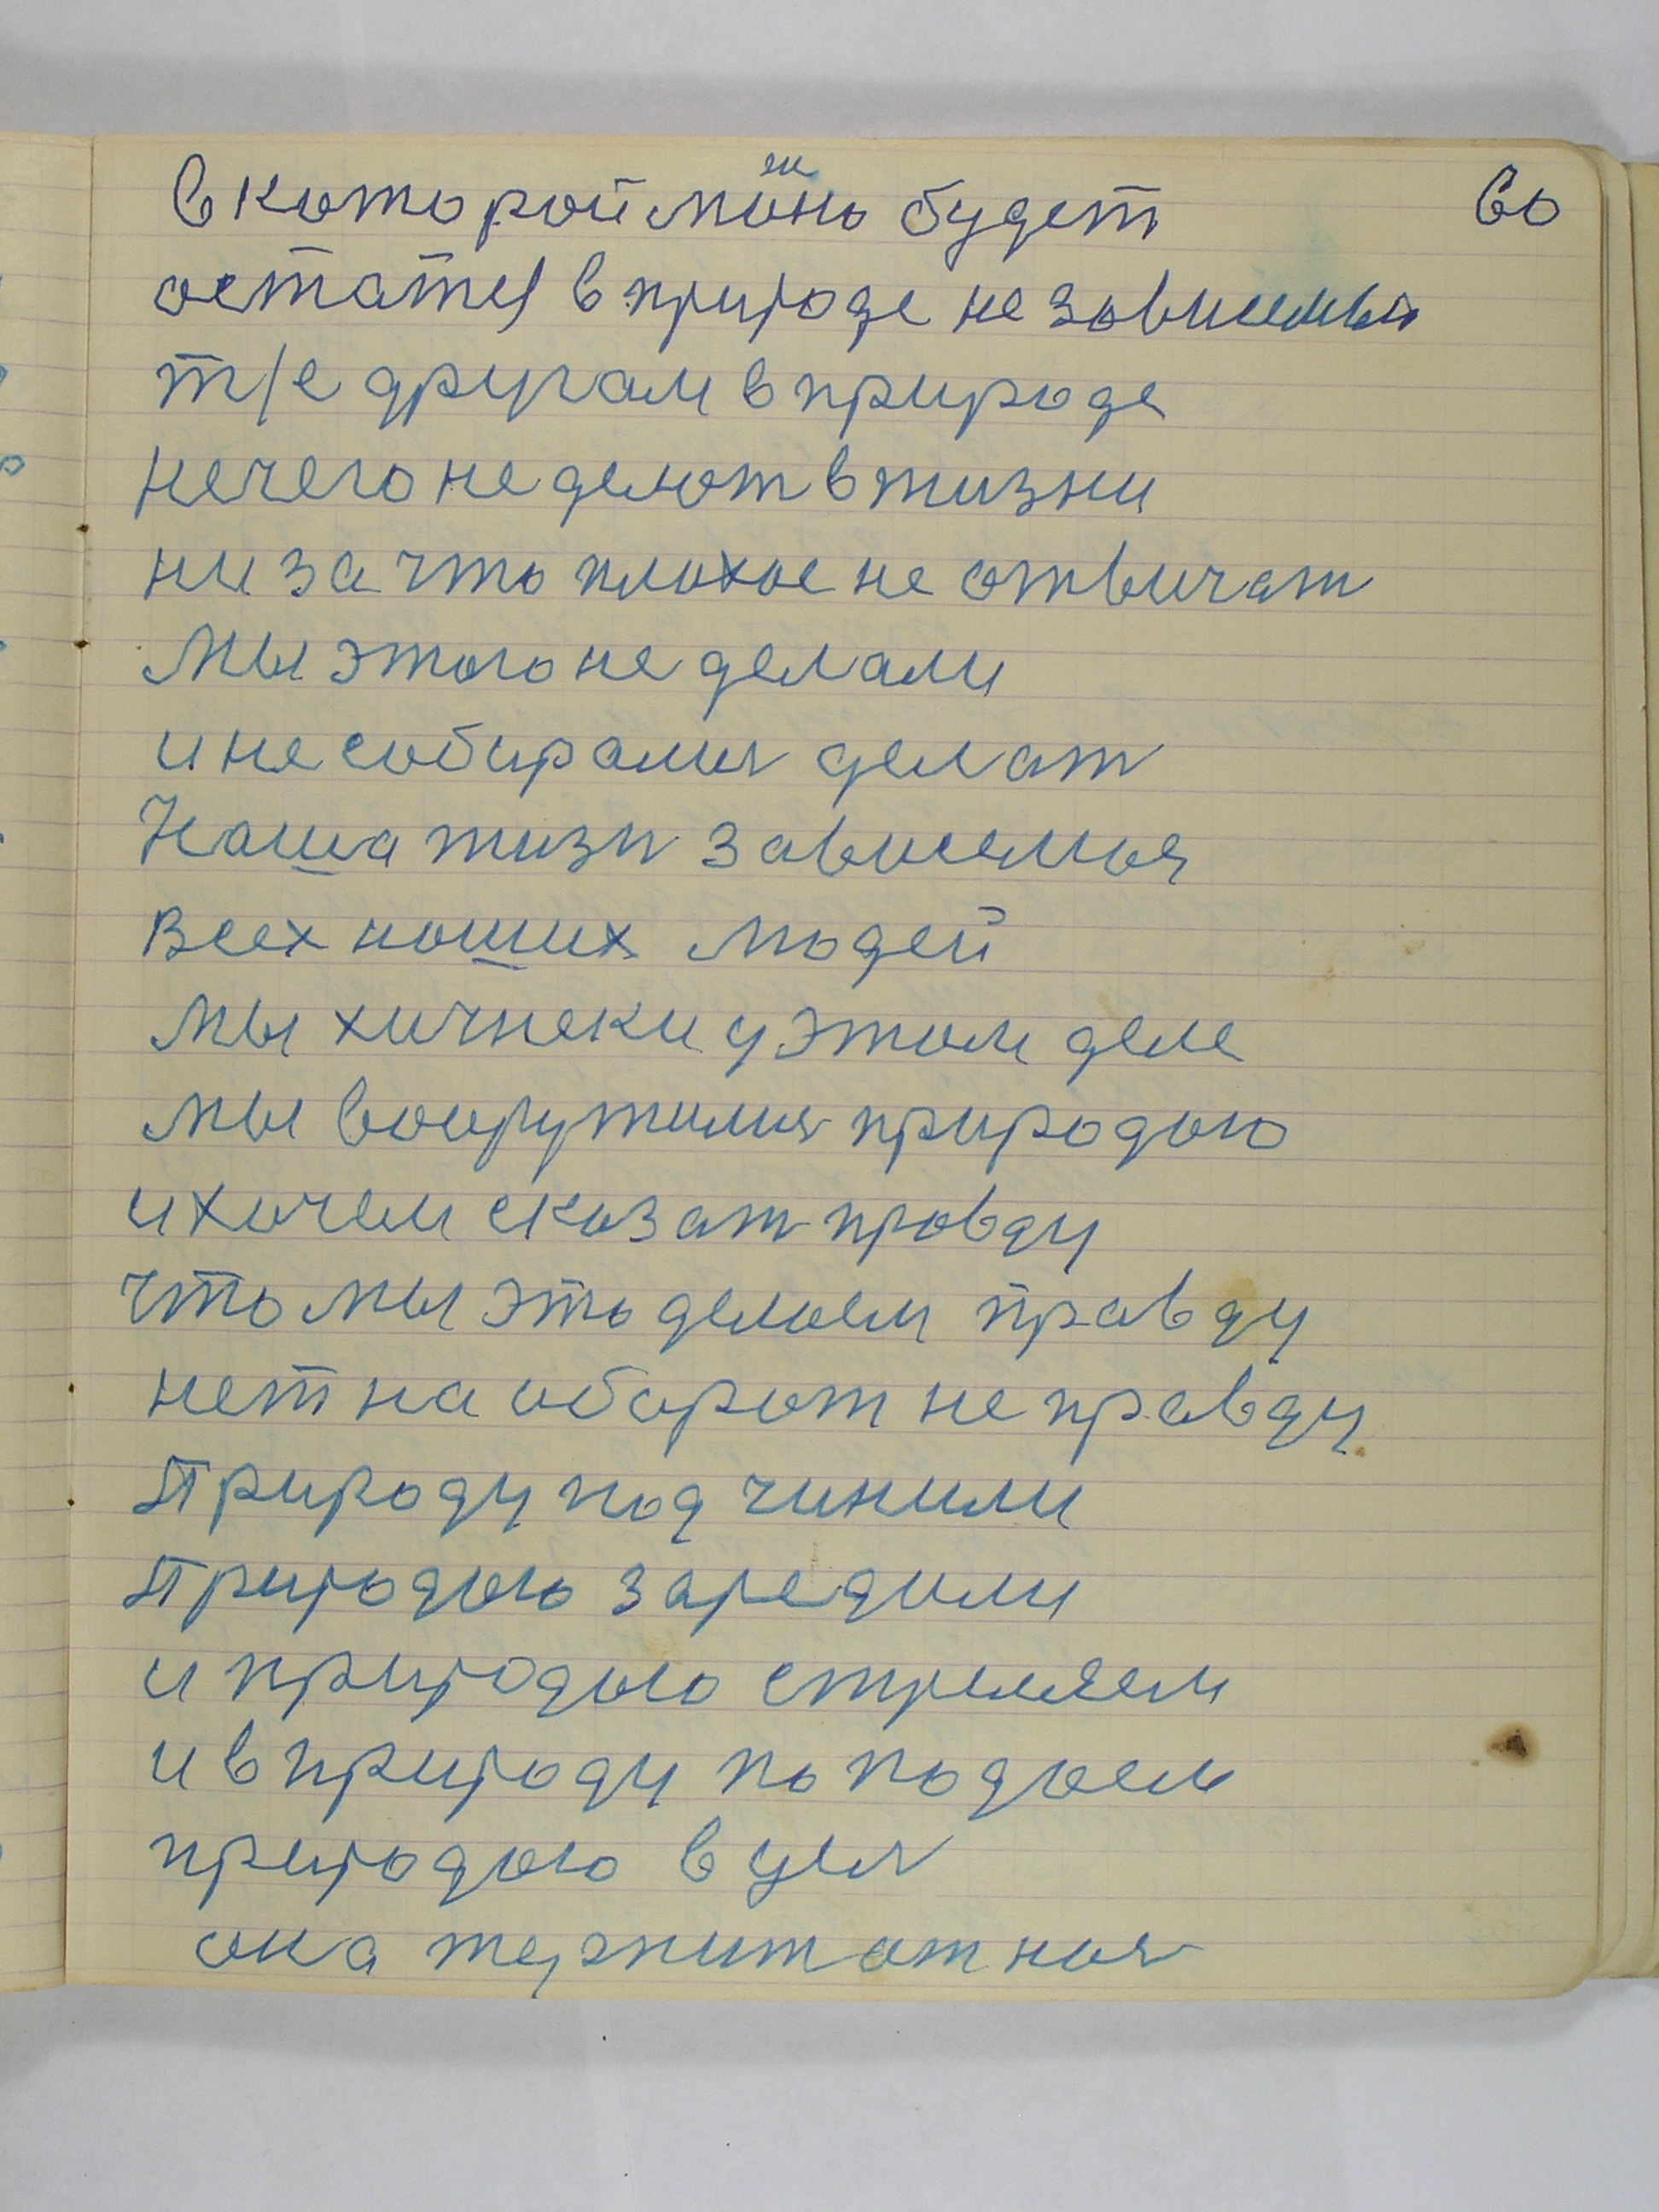 в которой можно будет 60
остатся в природе не зависимыя
т/е другам в природе
нечего не делют в жизни
ни за что плохое не отвичат
Мы этого не делали
и не собиралия делат
Наша жизн зависемоя
Всех наших людей
Мы хичнеки у этом деле
мы вооружилия природою
и хочем сказат правду
что мы это делаем правду
нет на оборот не правду
Природу подчинили
Природою заредили
и природою стреляем
и в природу пополадаем
природою в цел
она терпитатная